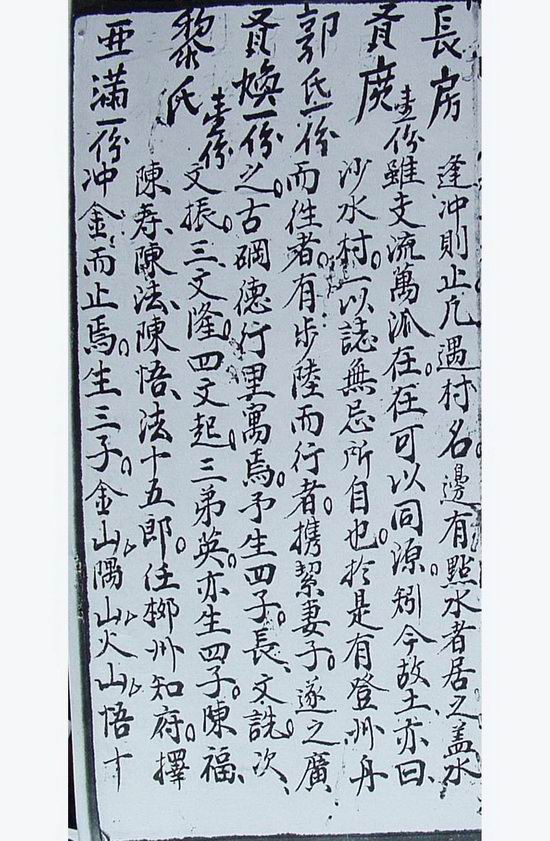 長房
逢冲則止凡遇村名邊有點水者居之蓋水
貴廣壹份
雖支流萬派在在可以同源。矧今故土亦曰、
沙水村。以誌無忌所自也。於是有登州丹
郭氏一份
而往者。有步陸而行者。携絜妻子。遂之廣
貴煥一份
之。古硐德行里寓焉。予生四子。長、文詵。次、
黎氏壹份
文振。三文隆。四文起。三弟英。亦生四子。陳福、
陳壽、陳法、陳悟、法十五郎。任梆州知府。擇
亞滿一份
冲金而止焉。生三子。金山隅山火山悟十